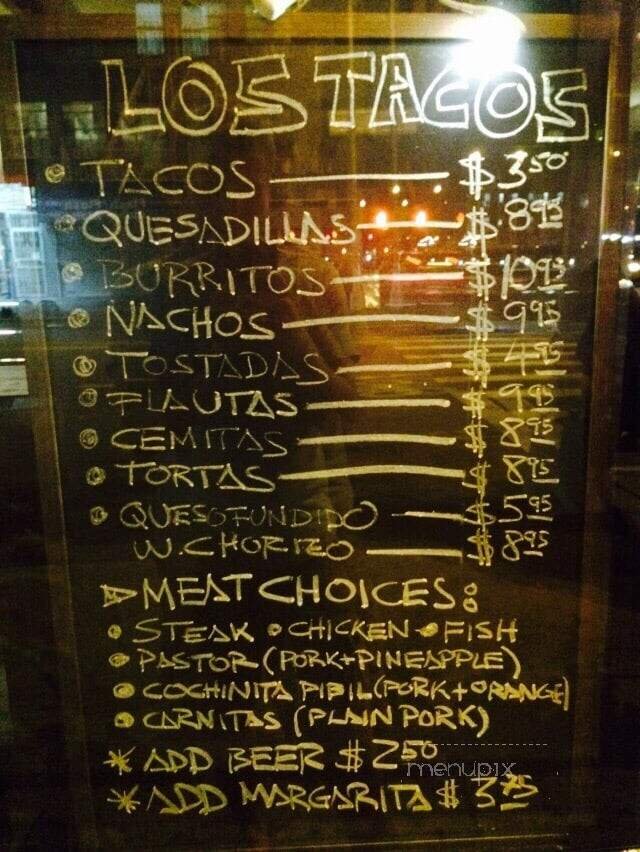 LOS TACOS
• TACOS — $3.50
• QUESADILLAS — $.8.95
• BURRITOS — $10.95
• NACHOS — $9.95
• TOSTADAS — $4.95
• FLAUTAS — $9.95
• CEMITAS — $8.95
• TORTAS — $8.95
• QUESOFUNDIDO — $5.95
W.CHORIZO — $8.95
▷ MEAT CHOICES:
• STEAK • CHICKEN • FISH
• PASTOR (PORK+PINEAPPLE)
• COCHINITA PIBIL (PORK+ORANGE)
• CARNITAS (PLAIN PORK)
* ADD BEER $2.50
menupix
* ADD MARGARITA $3.75